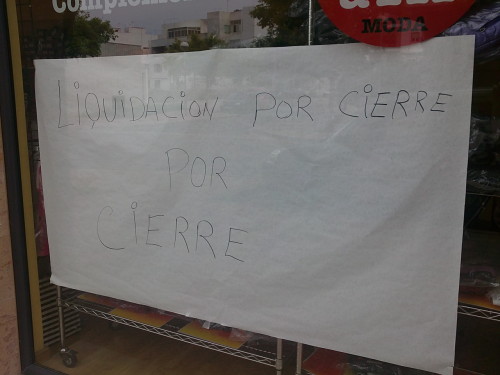 complemen
MODA
LiQUiDACiON POR CiERRE
POR
CiERRE